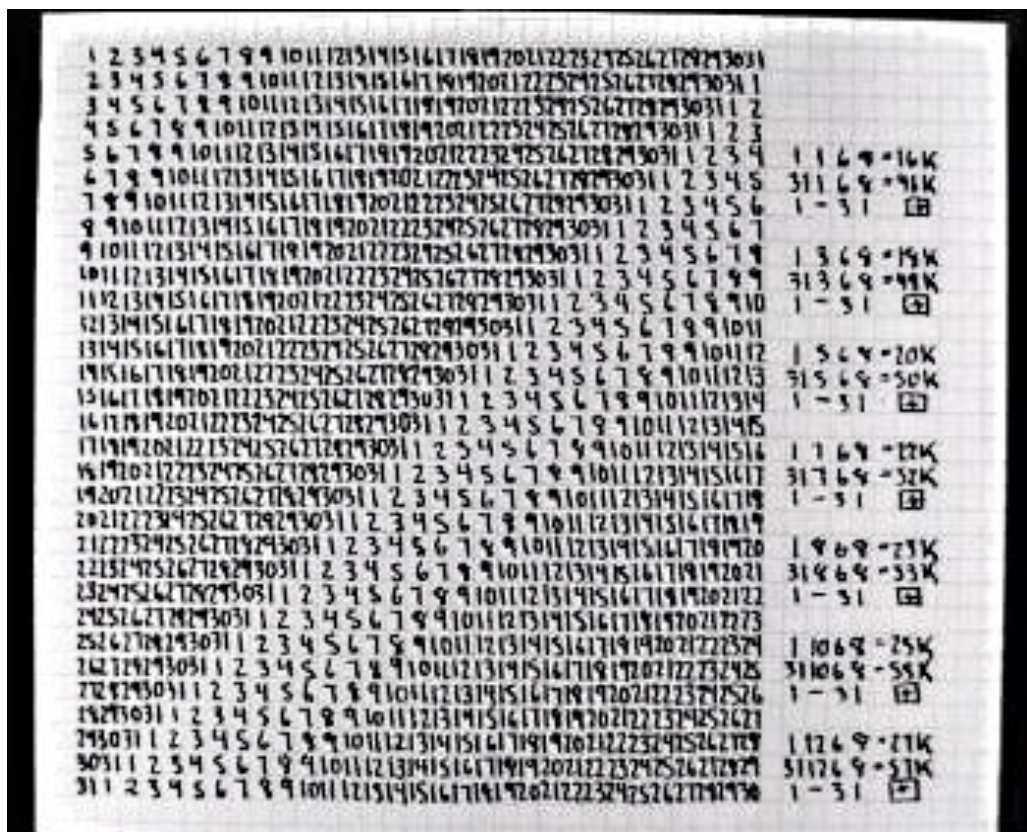 1 2 3 4 5 6 7 8 9 10111213141516171819202122232425262728293031
2 3 4 5 6 7 8 9 10111213141516171819202122232425262728293031 1
3 4 5 6 7 8 9 10111213141516171819202122232425262728293031 1 2
4 5 6 7 8 9 10111213141516171819202122232425262728293031 1 2 3
5 6 7 8 9 10111213141516171819202122232425262728293031 1 2 3 4 1 1 6 8 = 16K
6 7 8 9 10111213141516171819202122232425262728293031 1 2 3 4 5 31 1 6 8 = 46K
7 8 9 10111213141516171819202122232425262728293031 1 2 3 4 5 6 1 - 31
8 9 10111213141516171819202122232425262728293031 1 2 3 4 5 6 7
9 10111213141516171819202122232425262728293031 1 2 3 4 5 6 7 8 1 3 6 8 = 18K
10111213141516171819202122232425262728293031 1 2 3 4 5 6 7 8 9 31 3 6 8 = 48K
111213141516171819202122232425262728293031 1 2 3 4 5 6 7 8 9 10 1 - 31
1213141516171819202122232425262728293031 1 2 3 4 5 6 7 8 9 1011
13141516171819202122232425262728293031 1 2 3 4 5 6 7 8 9 101112 1 5 6 8 = 20K
141516171819202122232425262728293031 1 2 3 4 5 6 7 8 9 10111213 31 5 6 8 = 50K
1516171819202122232425262728293031 1 2 3 4 5 6 7 8 9 1011121314 1 - 31
16171819202122232425262728293031 1 2 3 4 5 6 7 8 9 101112131415
171819202122232425262728293031 1 2 3 4 5 6 7 8 9 10111213141516 1 7 6 8 = 22K
1819202122232425262728293031 1 2 3 4 5 6 7 8 9 1011121314151617 31 7 6 8 = 52K
19202122232425262728293031 1 2 3 4 5 6 7 8 9 101112131415161718 1 - 31
202122232425262728293031 1 2 3 4 5 6 7 8 9 10111213141516171819
2122232425262728293031 1 2 3 4 5 6 7 8 9 1011121314151617181920 1 8 6 8 = 23K
22232425262728293031 1 2 3 4 5 6 7 8 9 101112131415161718192021 31 8 6 8 = 53K
232425262728293031 1 2 3 4 5 6 7 8 9 10111213141516171819202122 1 - 31
2425262728293031 1 2 3 4 5 6 7 8 9 1011121314151617181920212223
25262728293031 1 2 3 4 5 6 7 8 9 101112131415161718192021222324 1 10 6 8 = 25K
262728293031 1 2 3 4 5 6 7 8 9 10111213141516171819202122232425 31 10 6 8 = 55K
2728293031 1 2 3 4 5 6 7 8 9 1011121314151617181920212223242526 1 - 31
28293031 1 2 3 4 5 6 7 8 9 101112131415161718192021222324252627
293031 1 2 3 4 5 6 7 8 9 10111213141516171819202122232425262728 1 12 6 8 = 27K
3031 1 2 3 4 5 6 7 8 9 1011121314151617181920212223242526272829 31 12 6 8 = 57K
31 1 2 3 4 5 6 7 8 9 101112131415161718192021222324252627282930 1 - 31